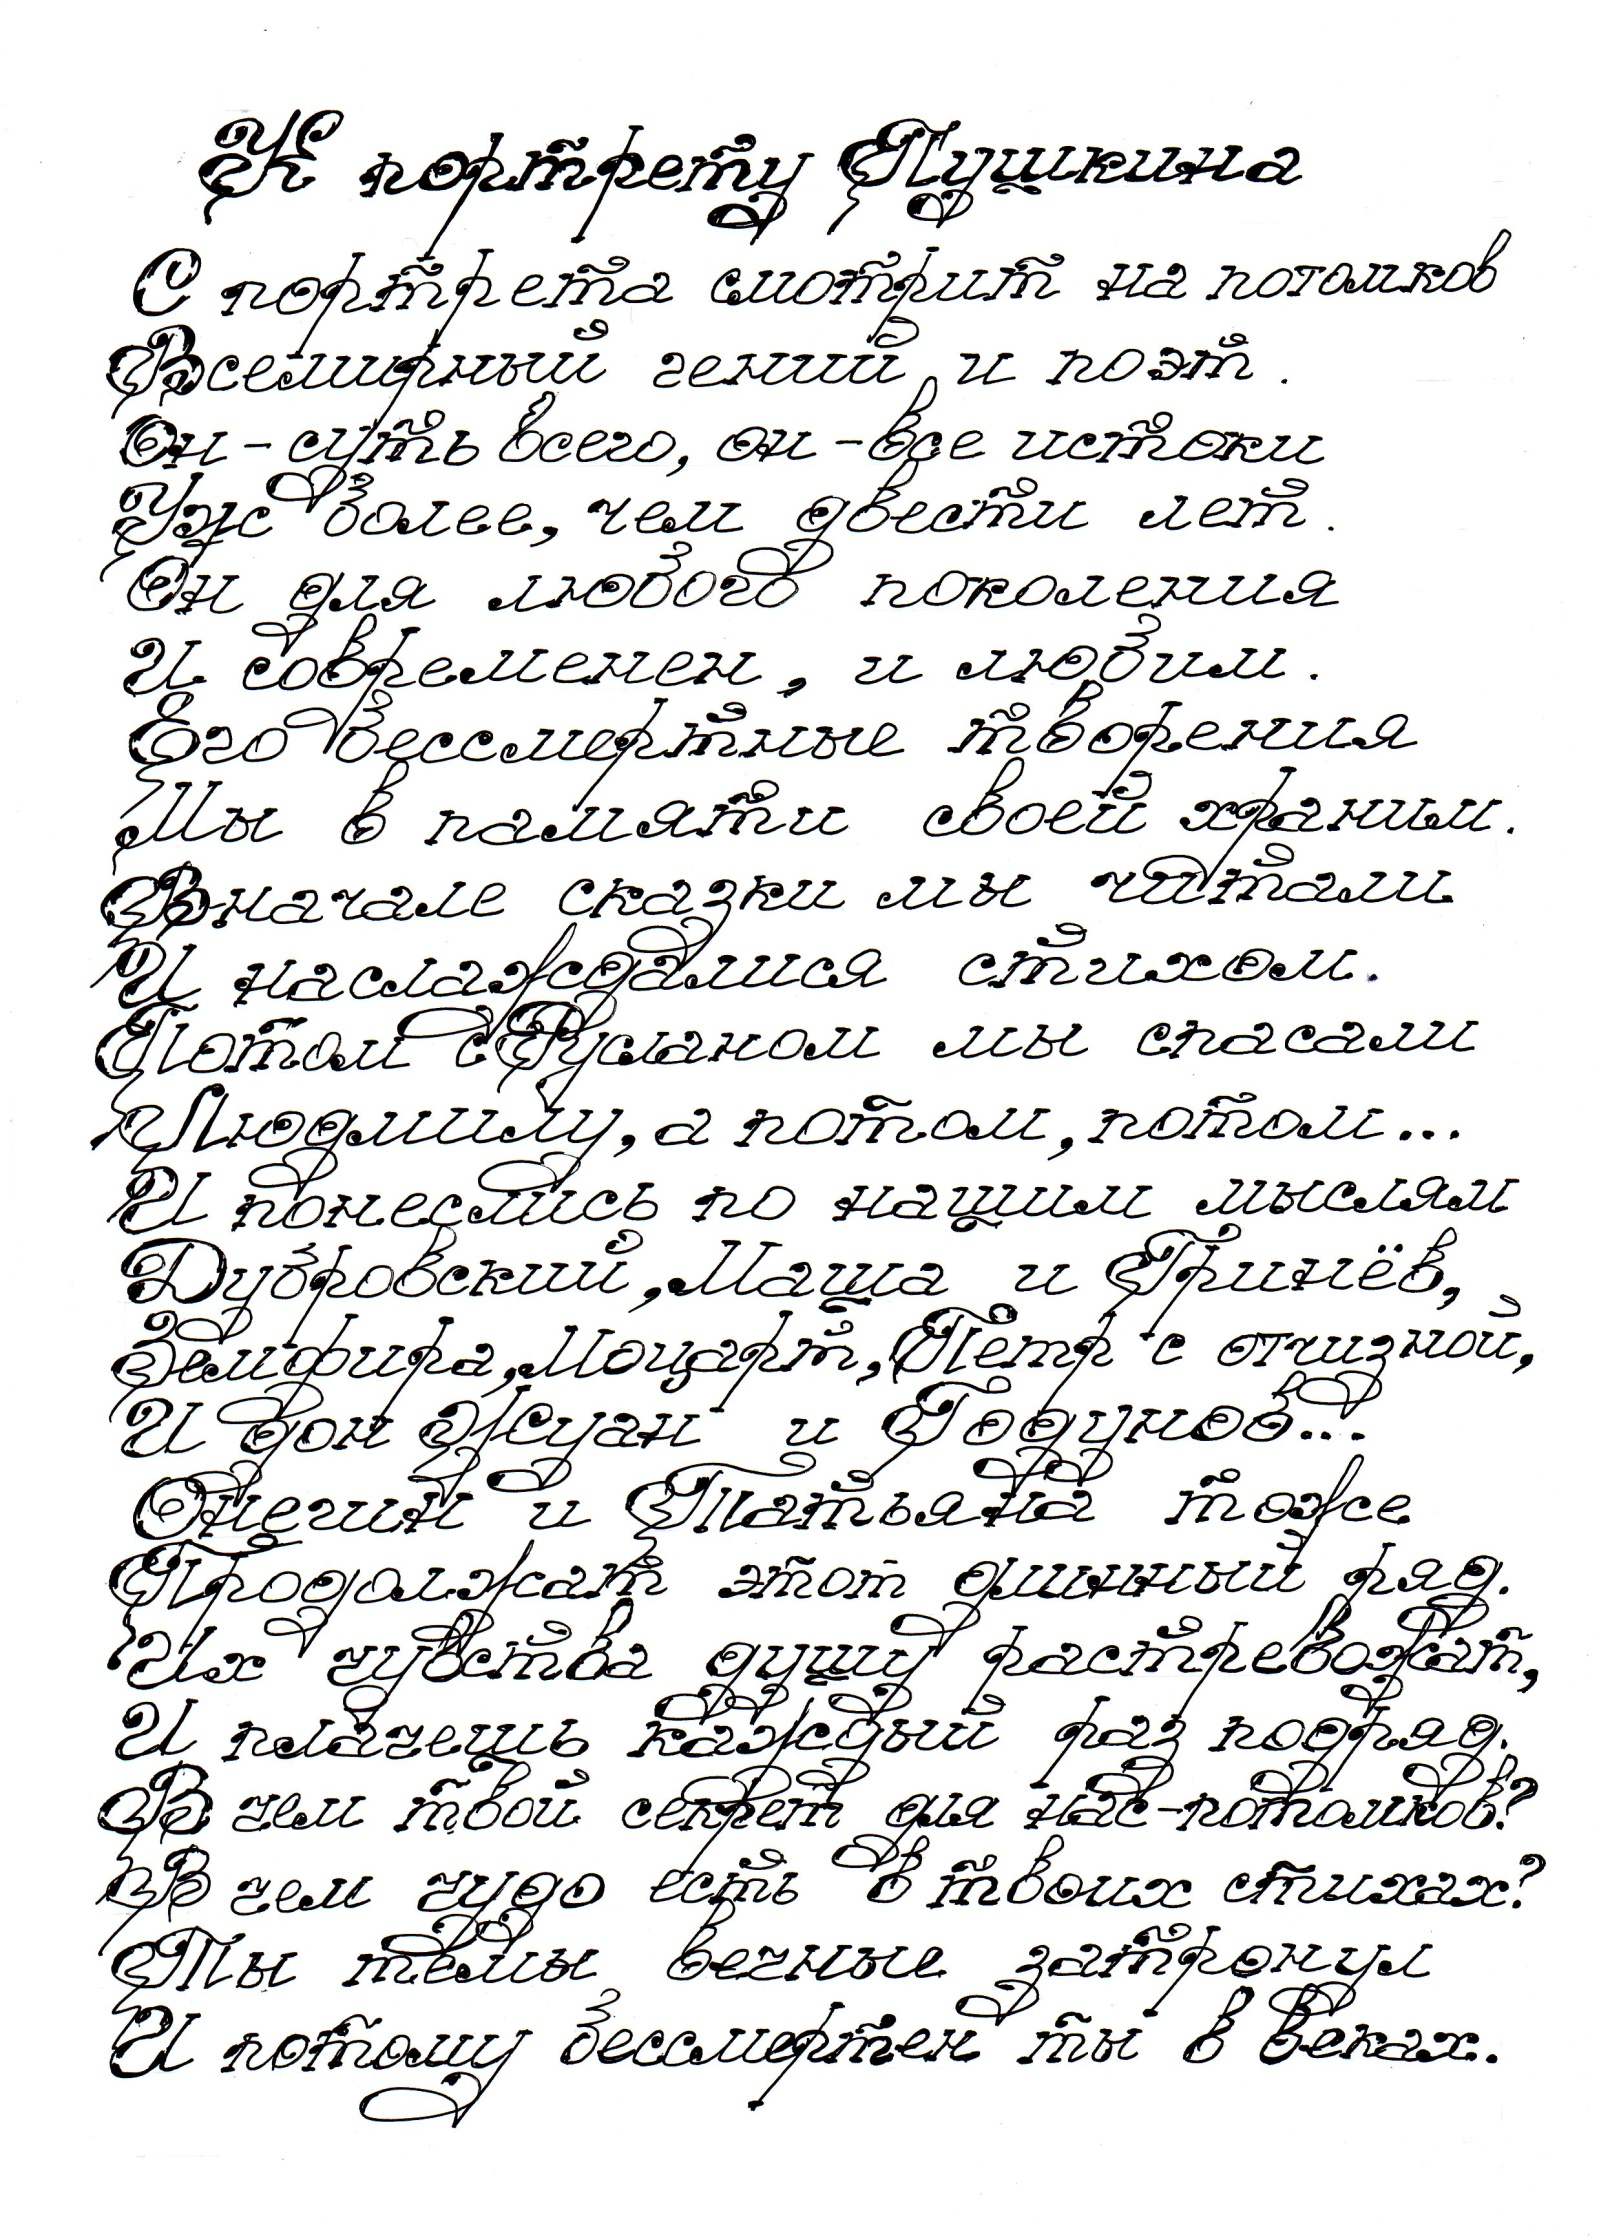 К портрету Пушкина
С портрета смотрит на потомков
Всемирный гений и поэт.
Он - суть всего, он - все истоки
Уж более, чем двести лет.
Он для любого поколения
И современен, и любим.
Его бессмертные творения
Мы в памяти своей храним.
Вначале сказки мы читали
И наслаждалися стихом.
Потом с Русланом мы спасали
Людмилу, а потом, потом...
И понеслись по нашим мыслям
Дубровский, Маша и Гринёв,
Земфира, Моцарт, Пётр с отчизной,
И дон Жуан и Годунов...
Онегин и Татьяна тоже
Продолжат этот длинный ряд.
Их чувства душу растревожат,
И плачешь каждый раз подряд.
В чем твой секрет для нас-потомков?
В чем чудо есть в твоих стихах?
Ты темы вечные затронул
И потому бессмертен ты в веках.